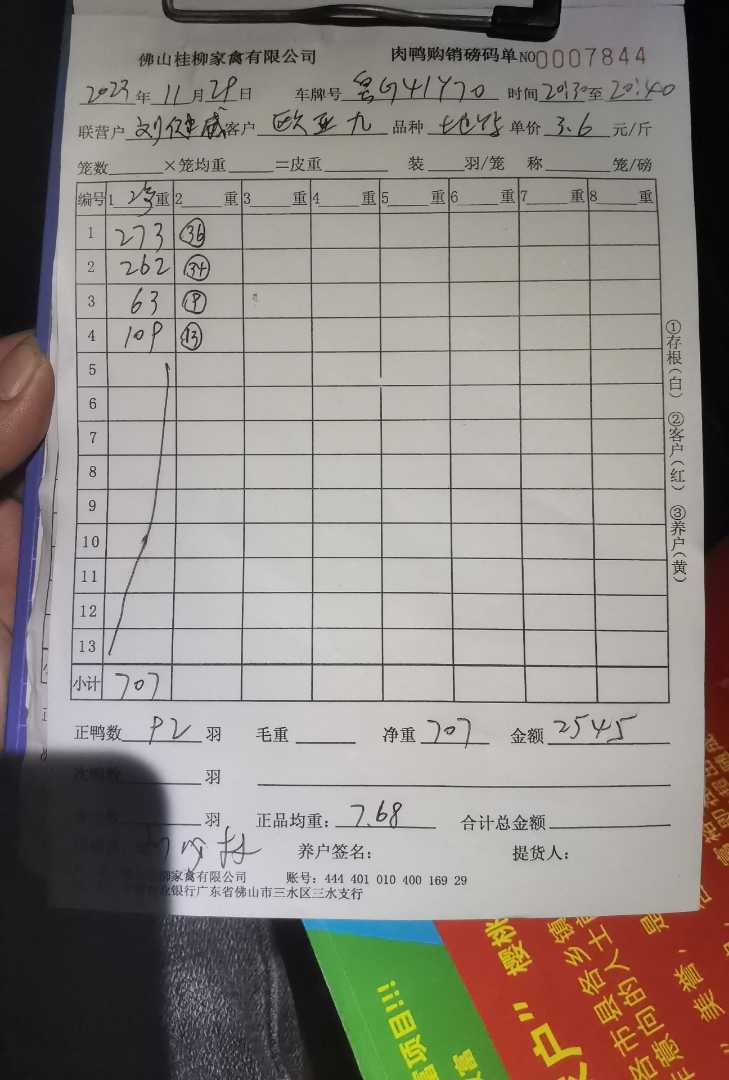 佛山桂柳家禽有限公司 肉鸭购销磅码单 NO 0007844
2023年 11月29日 车牌号 粤G41Y70 时间 20:30至20:40
联营户 刘健威 客户 欧亚九 品种 单价 3.6 元/斤
笼数 ×笼均重 =皮重 装 羽/笼 称 笼/磅
编号 1 2号 重 2 重 3 重 4 重 5 重 6 重 7 重 8 重
1 273 36
2 262 34
3 63 9
4 109 13
5
6
7
8
9
10
11
12
13
小计 707
①存根(白) ②客户(红) ③养户(黄)
正鸭数 92 羽 毛重 净重 707 金额 2545
羽
羽 正品均重: 7.68 合计总金额
养户签名: 提货人:
家禽有限公司 账号: 444 401 010 400 169 29
业银行广东省佛山市三水区三水支行